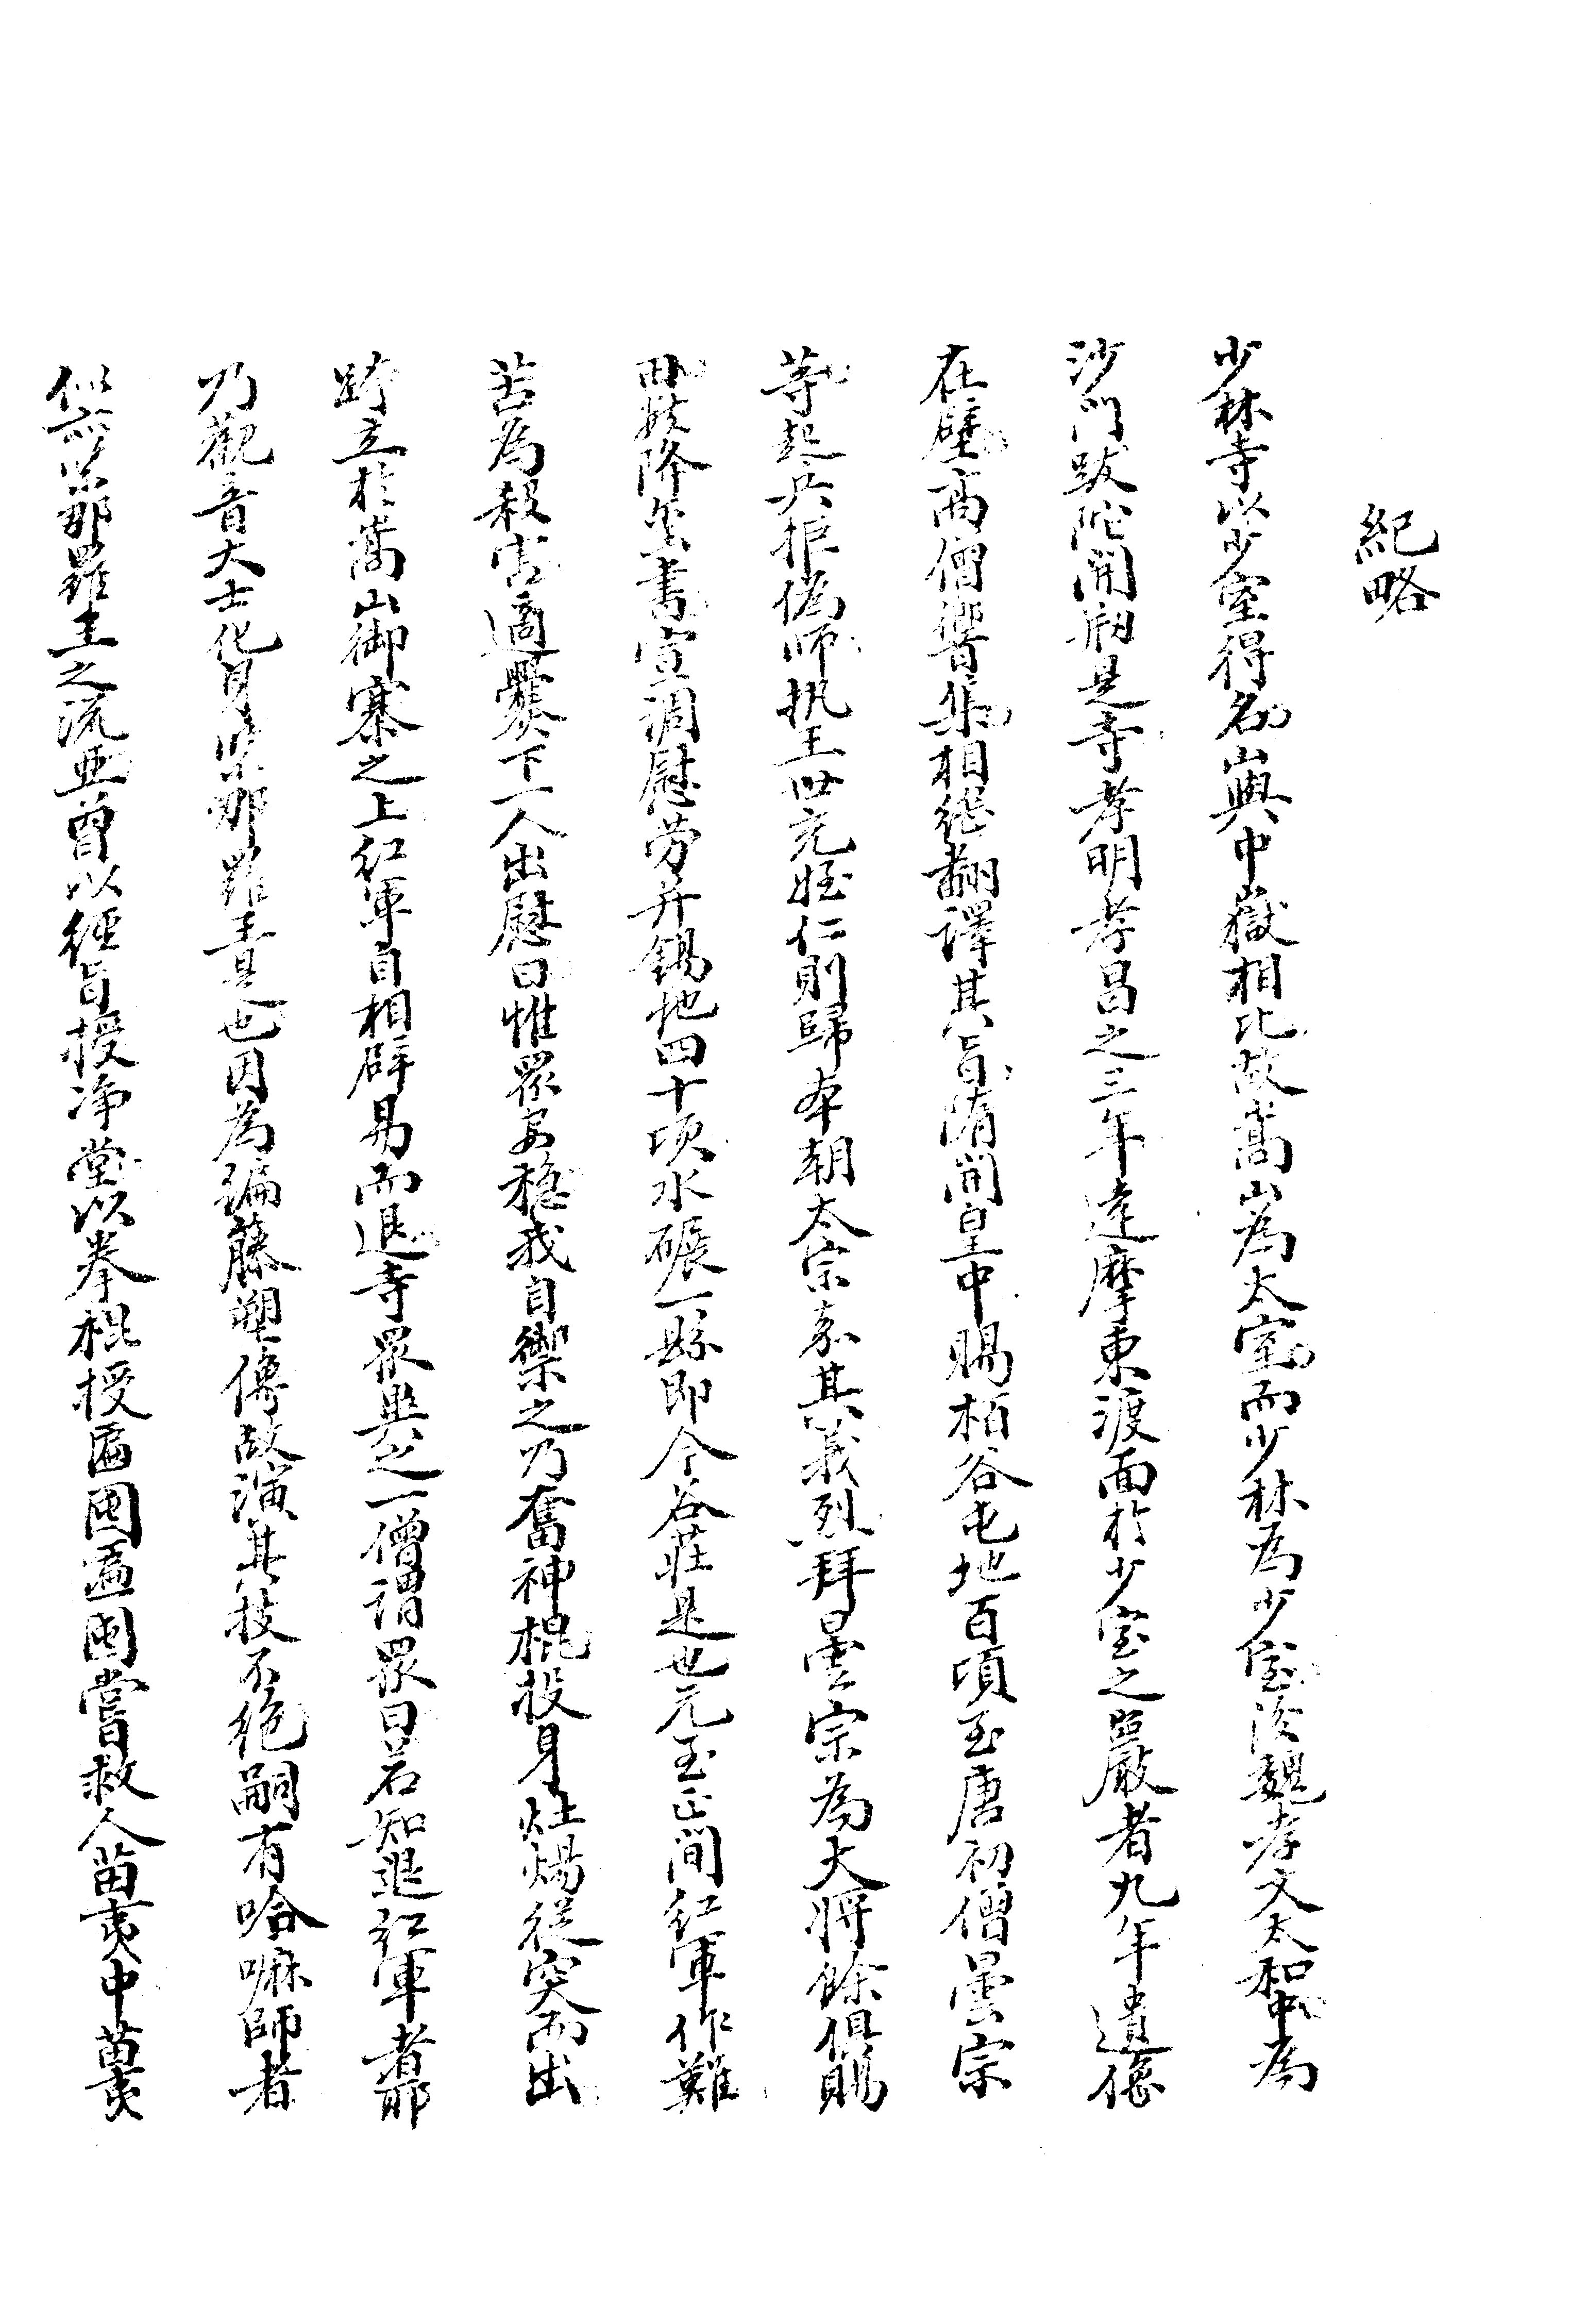 紀略
少林寺以少室得名山與中嶽相比故嵩山為太室而少林為少室後魏孝文太和中為
沙門跋陀開刱是寺孝明孝昌之三年達摩東渡面於少室之巖者九年遺像
在壁高僧響集相繼翻譯其旨隋開皇中賜柏谷屯地百頃至唐初僧曇宗
等起兵拒偽師执王世充姪仁則歸本朝太宗嘉其義烈拜曇宗為大將餘俱賜
降璽書宣調慰劳并錫地四十頃水碾一縣即今各莊是也元至正間紅軍作難
苦為殺害適爨下一人出慰曰惟眾安穩我自禦之乃奮神棍投身灶煬從突而出
跨立於嵩山御寨之上紅軍自相辟易而退寺眾異之一僧謂眾曰若知退紅軍者耶
乃觀音大士化身緊那羅王是也因為編藤塑像故演其技不絕嗣有哈嘛師者
似亦緊那羅王之流亞曾以經旨授淨堂以拳棍授匾囤匾囤嘗救人苗夷中苗夷